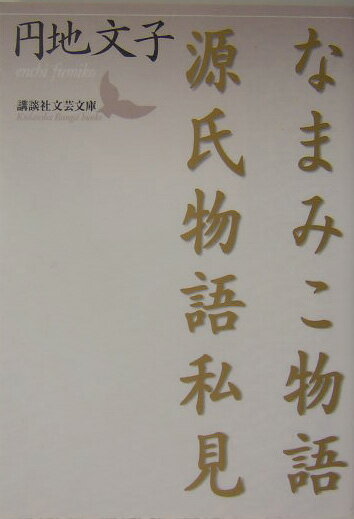 円地文子
enchi fumiko
講談社文芸文庫
Kodansha Bungei bunko
なまみこ物語
源氏物語私見